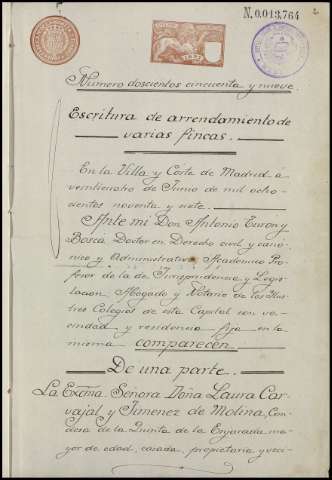 N. 0.013,764
Número doscientos cincuenta y nueve.
Escritura de arrendamiento de
varias fincas.
En la Villa y Córte de Madrid á
veinticuatro de Junio de mil ocho-
cientos noventa y siete.
Ante mi Don Antonio Turon y
Boscá Doctor en Derecho civil y canó-
nico y Administrativo Academico Pro-
fesor de la de Jurisprudencia y Legis-
lacion, Abogado y Notario de los Ilus-
tres Colegios de esta Capital con ve-
cindad y residencia fija en la
misma comparecen.
De una parte.
La Excma. Señora Doña Laura Car-
vajal y Jimenez de Molina, Con-
desa de la Quinta de la Enjarada, ma-
yor de edad, casada, propietaria y veci-